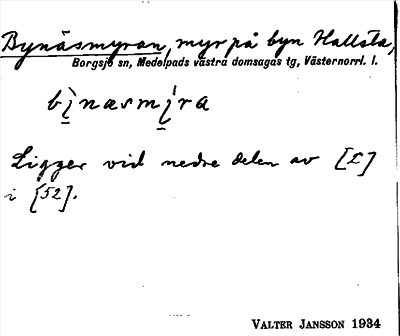 Bynäsmyran, myr på byn Hallsta,
Borgsjö sn, Medelpads västra domsagas tg, Västernorrl. l.
Ligger vid nedre delen av [L]
i [52].
VALTER JANSSON 1934